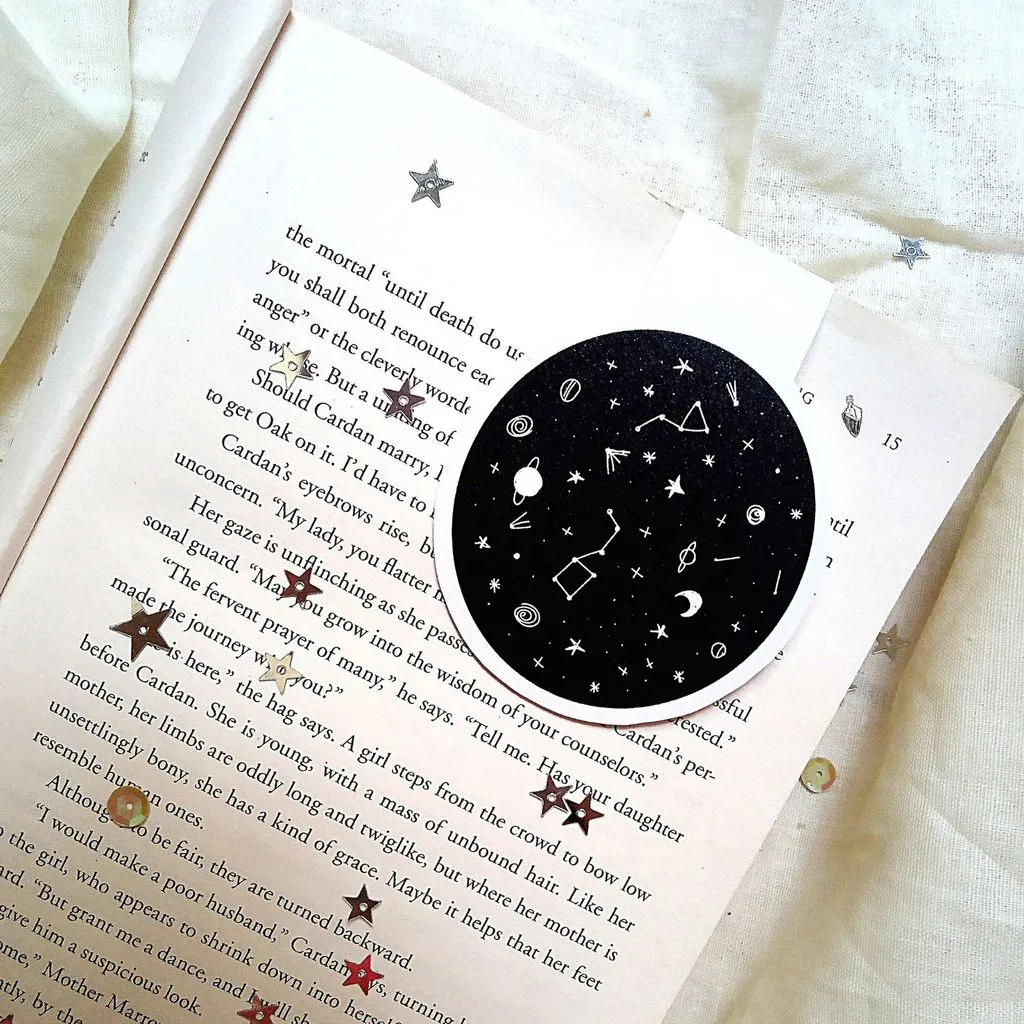 G 15
the mortal “until death do us
you shall both renounce
anger” or the cleverly
ing But a of until
Should Cardan marry, I
to get Oak on it. I’d have to
Cardan’s eyebrows rise,
unconcern. “My lady, you flatter
Her gaze is unflinching as she Cardan’s per-
sonal guard. “May you grow into the wisdom of your counselors.”
“The fervent prayer of many,” he says. “Tell me. Has your daughter
made the journey with you?”
is here,” the hag says. A girl steps from the crowd to bow low
before Cardan. She is young, with a mass of unbound hair. Like her
mother, her limbs are oddly long and twiglike, but where her mother is
unsettlingly bony, she has a kind of grace. Maybe it helps that her feet
resemble human ones.
Although, to be fair, they are turned backward.
“I would make a poor husband,” Cardan says, turning
the girl, who appears to shrink down into herself
“But grant me a dance, and I will
give him a suspicious look.
Mother
by the